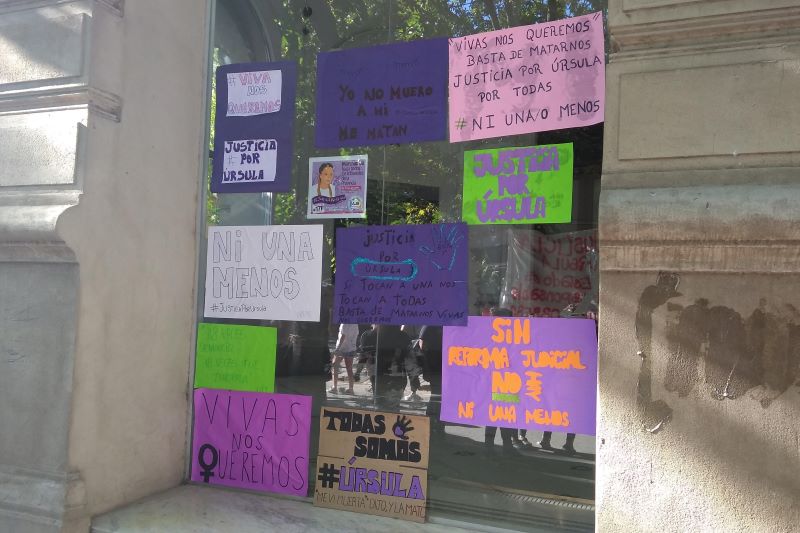 #VIVA
NOS
QUEREMOS
JUSTICIA
#POR
ÚRSULA
YO NO MUERO
A MI
ME MATAN
"VIVAS NOS QUEREMOS"
BASTA DE MATARNOS
JUSTICIA POR ÚRSULA
POR TODAS
#NI UNA/O MENOS
JUSTICIA
POR
ÚRSULA
NI UNA
MENOS
#JUSTICIAPORÚRSULA
JUSTICIA
POR
ÚRSULA
SI TOCAN A UNA NOS
TOCAN A TODAS
BASTA DE MATARNOS VIVAS
NOS QUEREMOS
SIN
REFORMA JUDICIAL
NO HAY
NI UNA MENOS
VIVAS
NOS
QUEREMOS
TODAS
SOMOS
#ÚRSULA
"ME VÍ MUERTA" DIJO, Y LA MATO